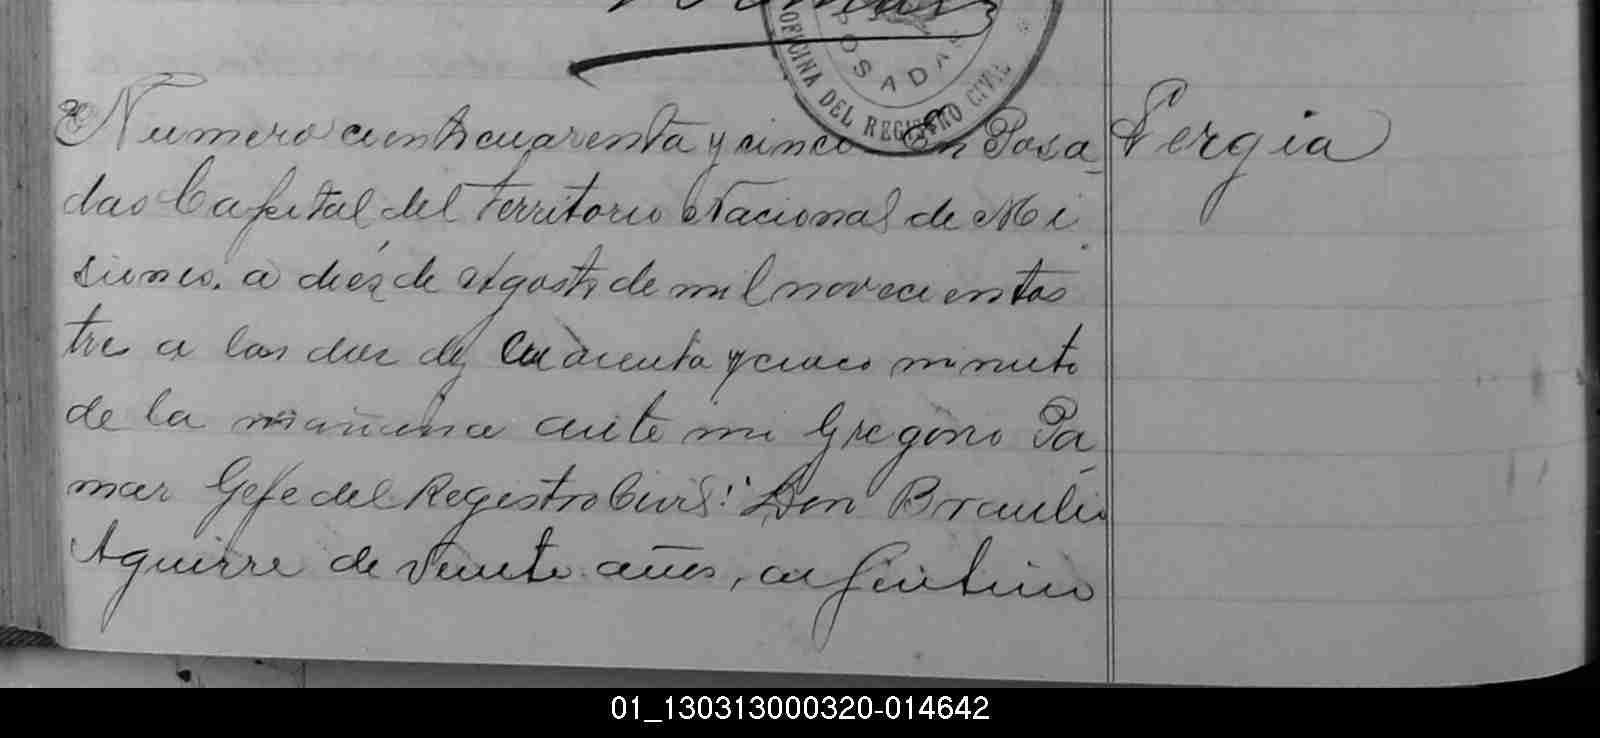 POSADAS
OFICINA DEL REGISTRO CIVIL
Numero ciento cuarenta y cinco En Posa
das Capital del Territorio Nacional de Mi
siones. a diéz de Agosto de mil novecientos
tres a las diez de cuarenta y cinco minuto
de la mañana ante mi Gregorio Pa
mar Gefe del Registro Civil: Don Braulio
Aguirre de veinte años, argentino
Pergia
01_130313000320-014642